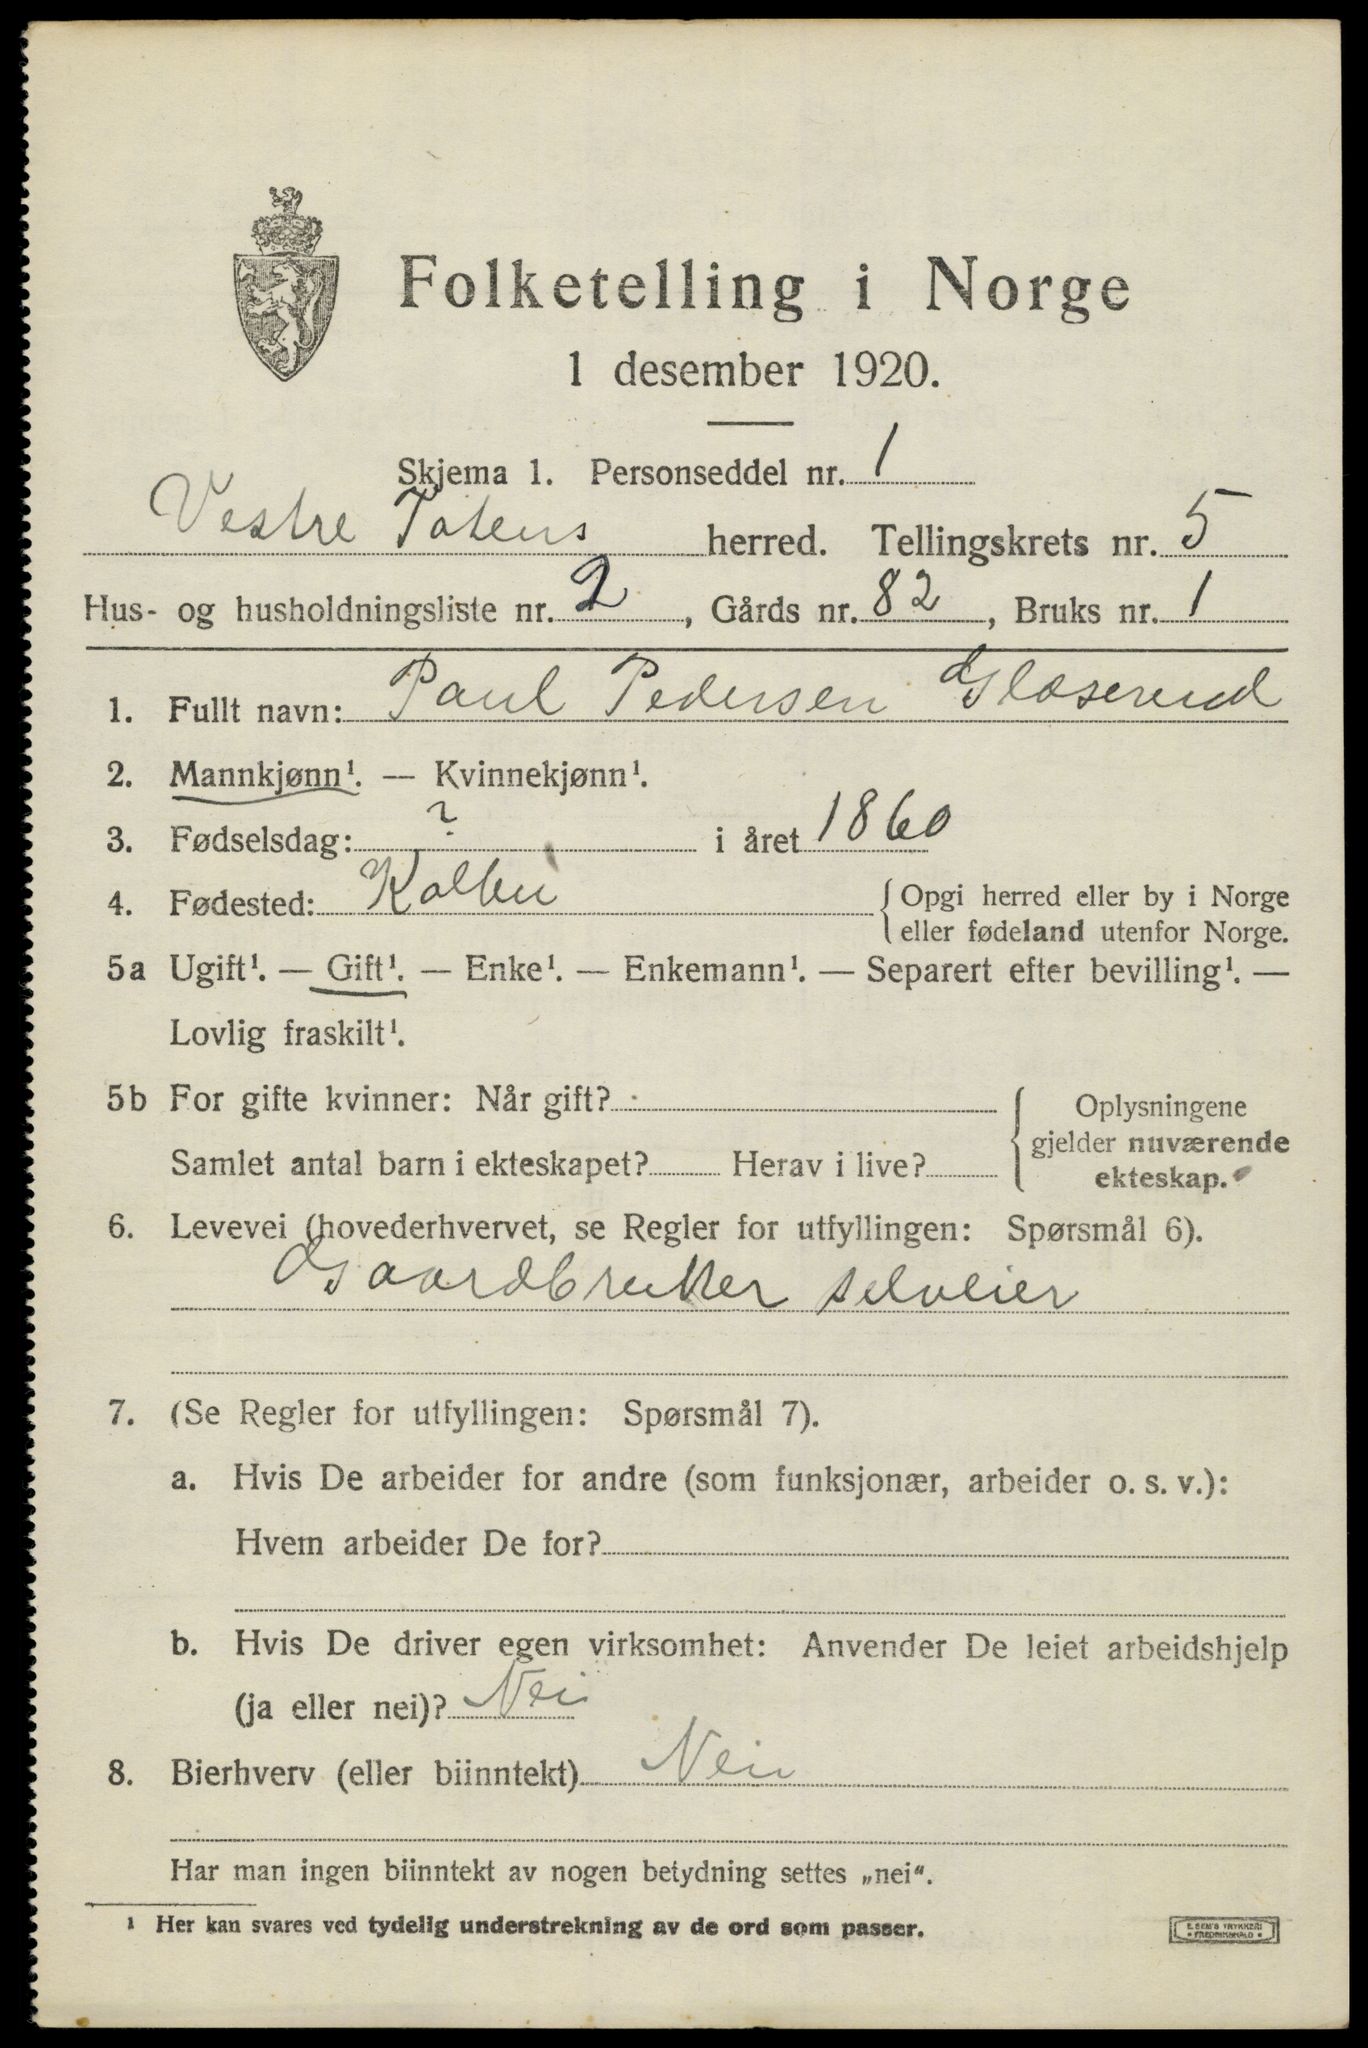 Folketelling i Norge
1 desember 1920.
Skjema 1. Personseddel nr. 1
Vestre Totens herred. Tellingskrets nr. 5
Hus- og husholdningsliste nr. 2, Gårds nr. 82, Bruks nr. 1
1. Fullt navn: Paul Pedersen Glæserud
2. Mannkjønn¹. — Kvinnekjønn¹.
3. Fødselsdag: ? i året 1860
4. Fødested: Kolbu {Opgi herred eller by i Norge
eller fødeland utenfor Norge.
5a Ugift¹. — Gift¹. — Enke¹. — Enkemann¹. — Separert efter bevilling¹. —
Lovlig fraskilt¹.
5b For gifte kvinner: Når gift? { Oplysningene
gjelder nuværende
Samlet antal barn i ekteskapet? Herav i live?
ekteskap.
6. Levevei (hovederhvervet, se Regler for utfyllingen: Spørsmål 6).
Gaardbruker selveier
7. (Se Regler for utfyllingen: Spørsmål 7).
a. Hvis De arbeider for andre (som funksjonær, arbeider o. s. v.):
Hvem arbeider De for?
b. Hvis De driver egen virksomhet: Anvender De leiet arbeidshjelp
(ja eller nei)? Nei
8. Bierhverv (eller biinntekt) Nei
Har man ingen biinntekt av nogen betydning settes „nei“.
¹ Her kan svares ved tydelig understrekning av de ord som passer.
E. SEM'S TRYKKERI
• FREDRIKSHALD •